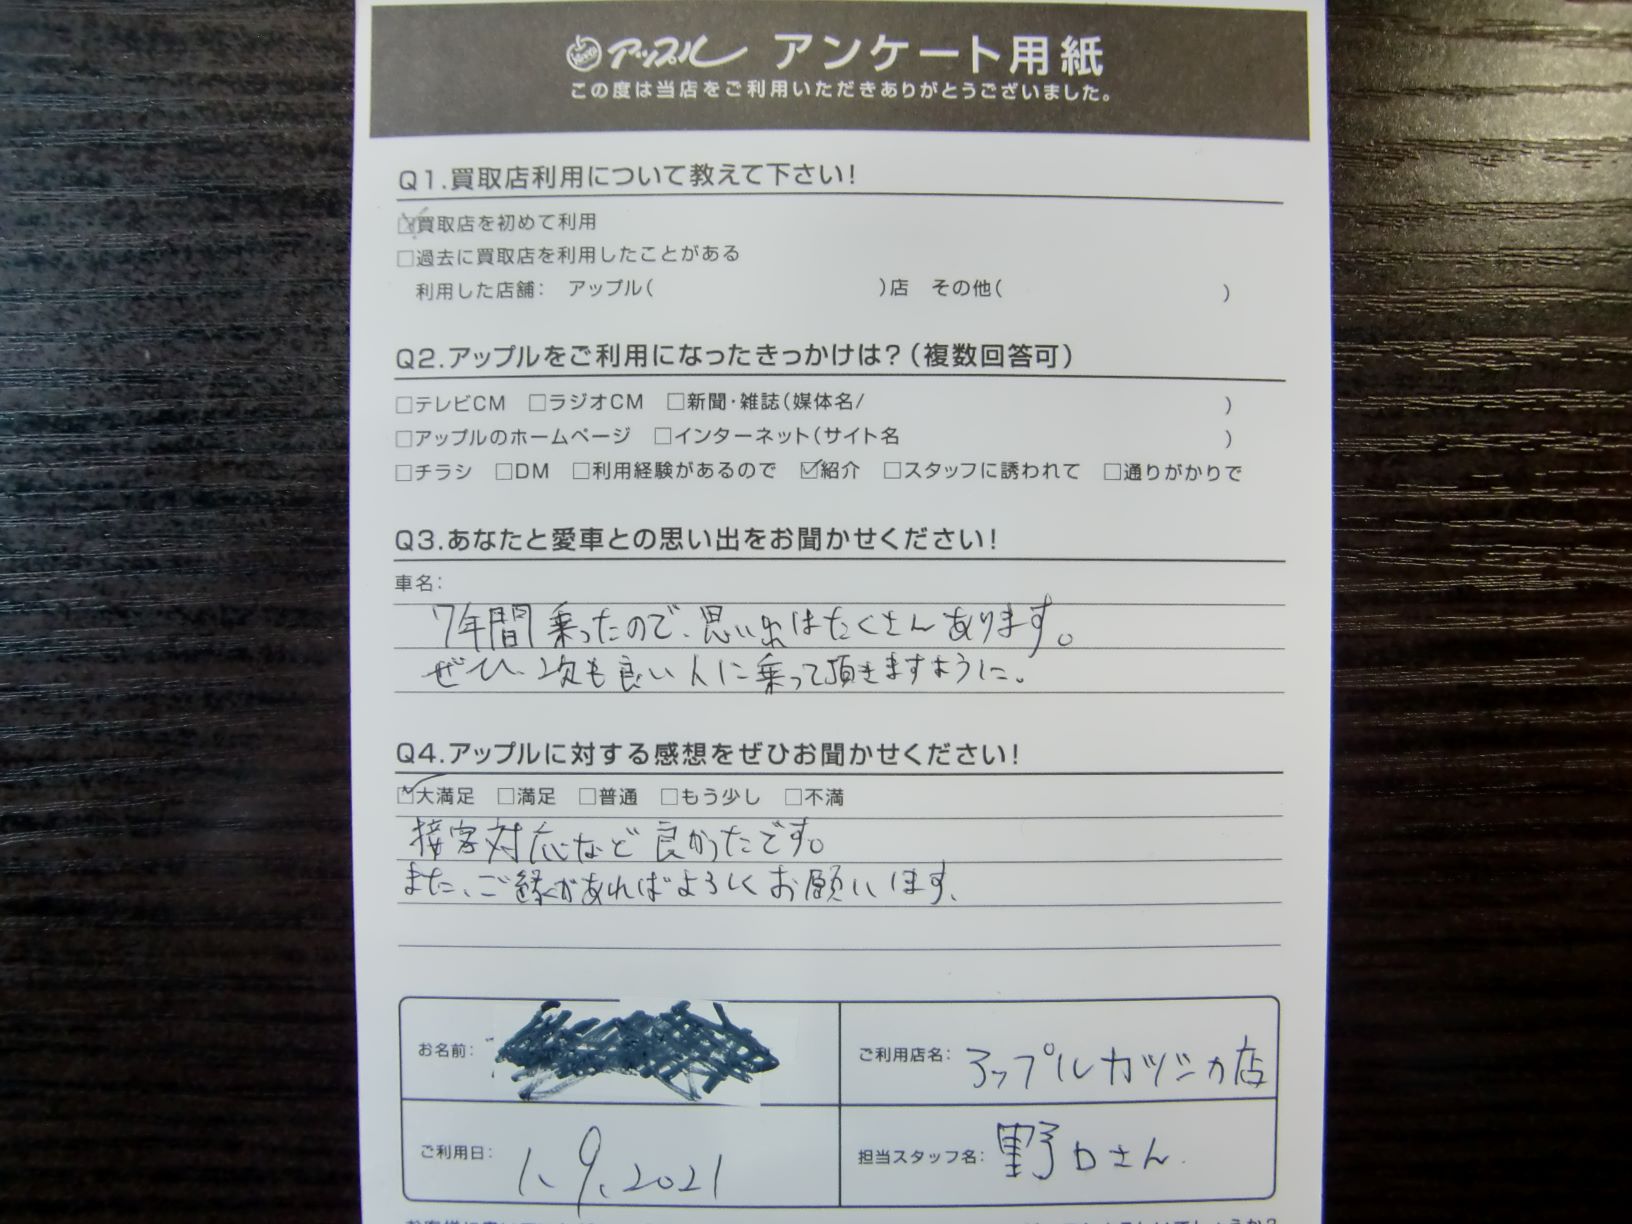 アップル アンケート用紙
この度は当店をご利用いただきありがとうございました。
Q1.買取店利用について教えて下さい!
☑買取店を初めて利用
□過去に買取店を利用したことがある
利用した店舗: アップル( )店 その他( )
Q2.アップルをご利用になったきっかけは?(複数回答可)
□テレビCM □ラジオCM □新聞・雑誌(媒体名/ )
□アップルのホームページ □インターネット(サイト名 )
□チラシ □DM □利用経験があるので ☑紹介 □スタッフに誘われて □通りがかりで
Q3.あなたと愛車との思い出をお聞かせください!
車名:
7年間乗ったので、思い出はたくさんあります。
ぜひ、次も良い人に乗って頂きますように。
Q4.アップルに対する感想をぜひお聞かせください!
☑大満足 □満足 □普通 □もう少し □不満
接客対応など良かったです。
また、ご縁があればよろしくお願いします。
お名前:
ご利用店名: アップルカツシカ店
ご利用日: 1.9.2021
担当スタッフ名: 野口さん